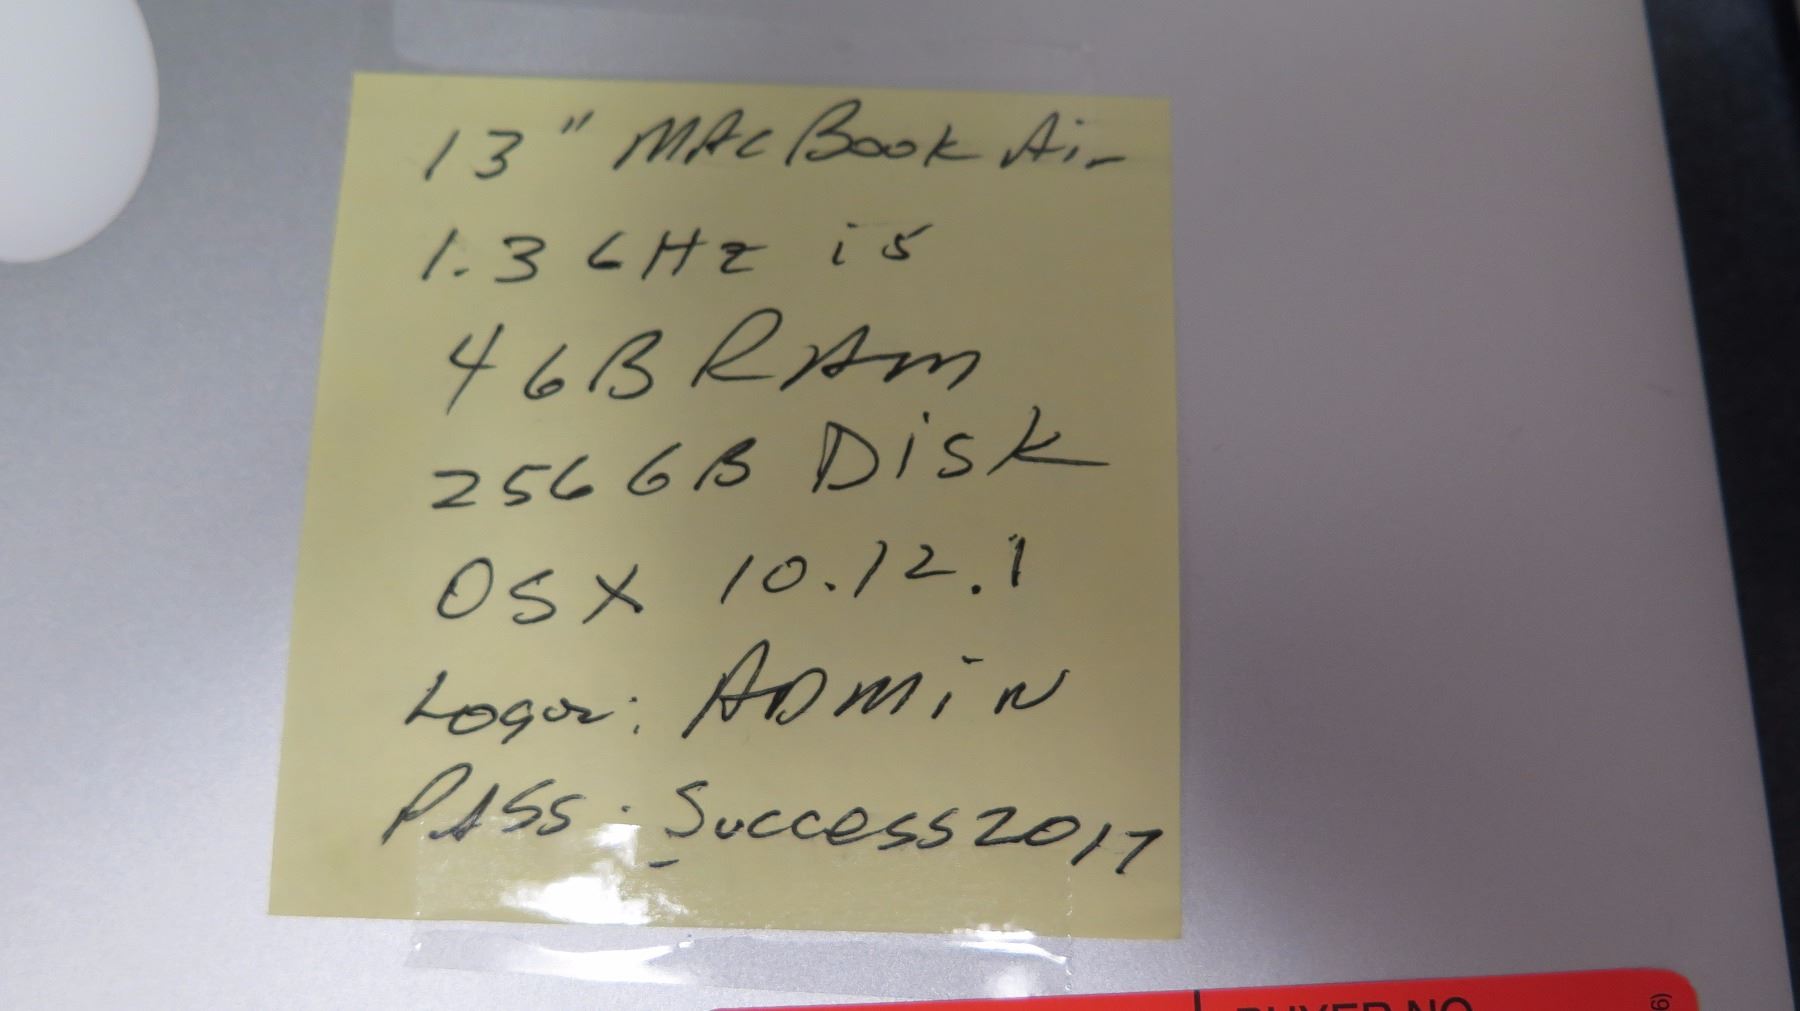 13" MACBook Air
1.3 GHz i5
4 GB RAM
256 GB Disk
OSX 10.12.1
Logon: ADMiN
PASS: Success2017
BUYER NO